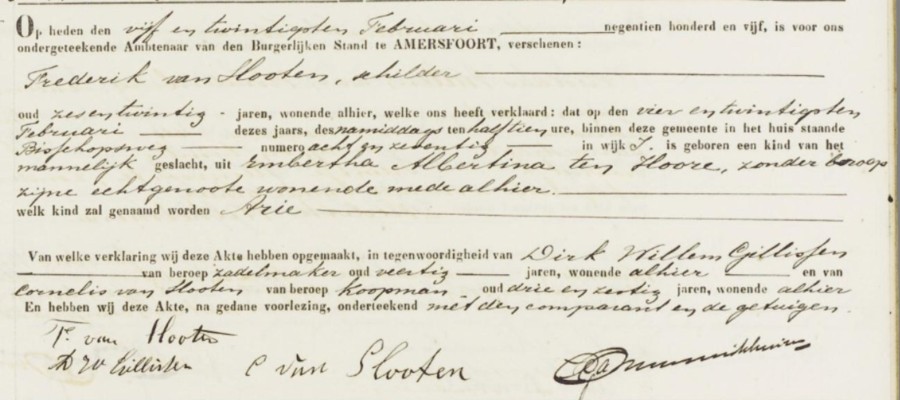 Op heden den vijf en twintigsten Februari negentien honderd en vijf, is voor ons
ondergeteekende Ambtenaar van den Burgerlijken Stand te AMERSFOORT, verschenen:
Frederik van Slooten, schilder
oud zesentwintig - jaren, wonende alhier, welke ons heeft verklaard: dat op den vier en twintigsten
Februari dezes jaars, des namiddags ten half tien ure, binnen deze gemeente in het huis staande
Bisschopsweg numero acht en zeventig in wijk J. is geboren een kind van het
mannelijk geslacht, uit Embertha Albertina ten Hoore, zonder beroep
zijne echtgenoote wonende mede alhier.
welk kind zal genaamd worden Arie
Van welke verklaring wij deze Akte hebben opgemaakt, in tegenwoordigheid van Dirk Willem Gillissen
van beroep zadelmaker oud veertig jaren, wonende alhier en van
Cornelis van Slooten van beroep Koopman, oud drie en zestig jaren, wonende alhier
En hebben wij deze Akte, na gedane voorlezing, onderteekend met den comparant en de getuigen.
F. van Slooten
D W Gillissen
C van Slooten